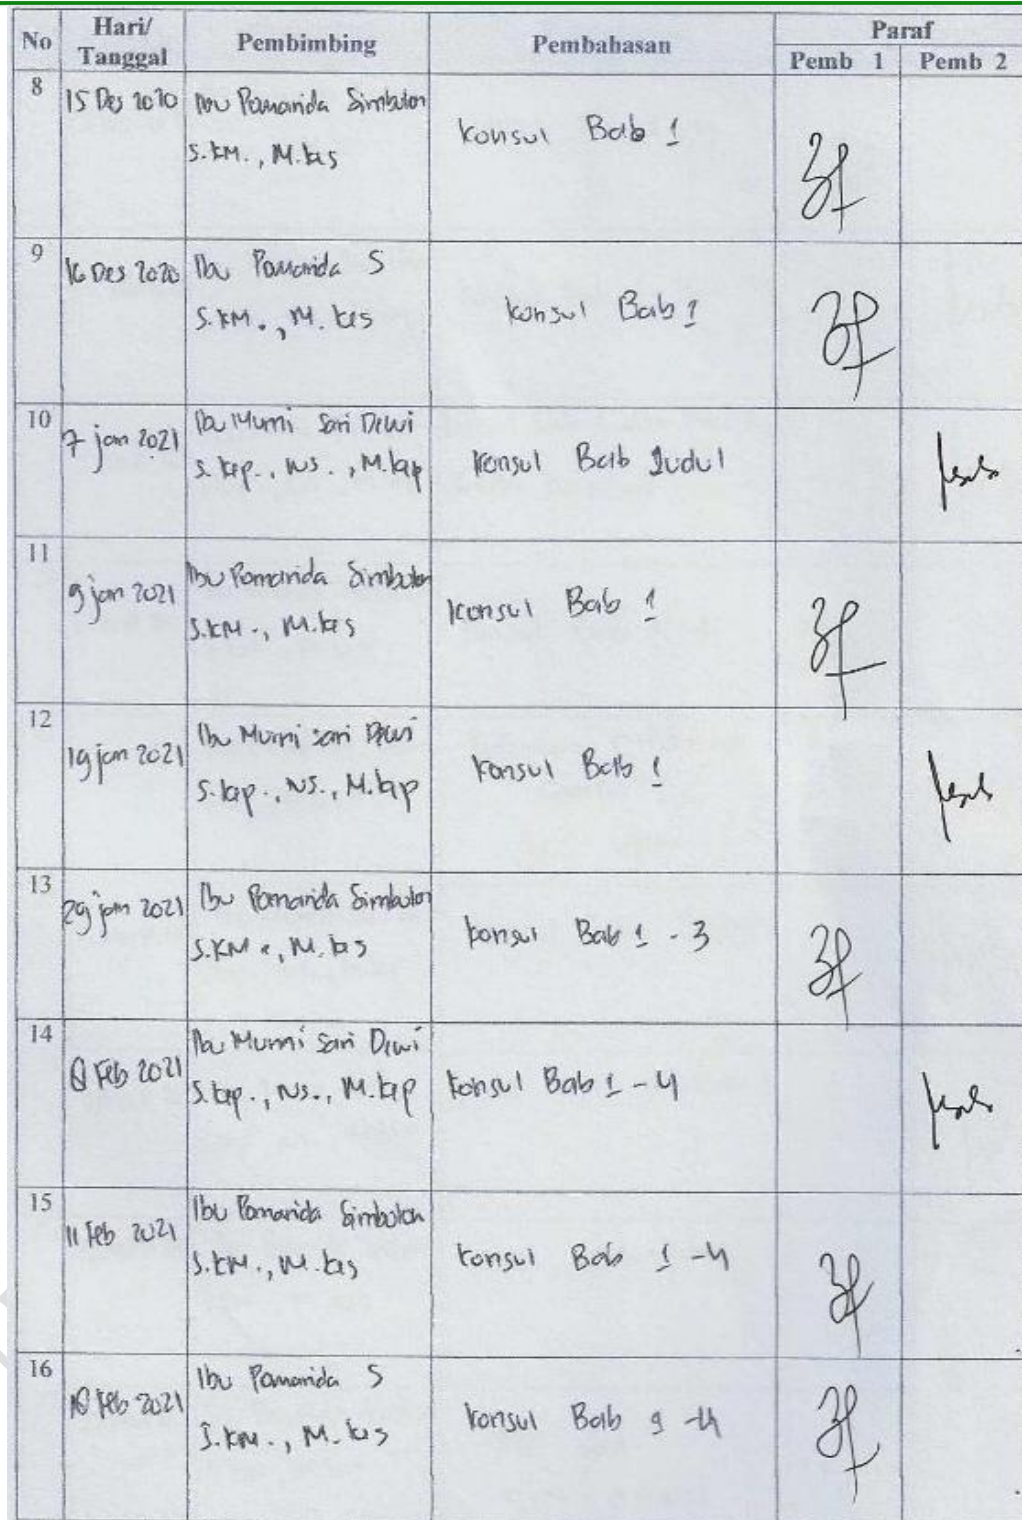 No Hari/ Tanggal Pembimbing Pembahasan Paraf
Pemb 1 Pemb 2
8 15 Des 2020 Ibu Pomarida Simbolon
S.KM., M.Kes
Konsul Bab 1
9 16 Des 2020 Ibu Pomarida S
S.KM., M.Kes
Konsul Bab 1
10 7 jan 2021 Ibu Murni Sari Dewi
S.Kep., NS., M.Kep
Konsul Bab Judul
11 9 jan 2021 Ibu Pomarida Simbolon
S.KM., M.Kes
Konsul Bab 1
12 19 jan 2021 Ibu Murni Sari Dewi
S.Kep., NS., M.Kep
Konsul Bab 1
13 29 jan 2021 Ibu Pomarida Simbolon
S.KM., M.Kes
Konsul Bab 1 - 3
14 8 Feb 2021 Ibu Murni Sari Dewi
S.Kep., NS., M.Kep
Konsul Bab 1 - 4
15 11 Feb 2021 Ibu Pomarida Simbolon
S.KM., M.Kes
Konsul Bab 1 - 4
16 Feb 2021 Ibu Pomarida S
S.KM., M.Kes
Konsul Bab - 4